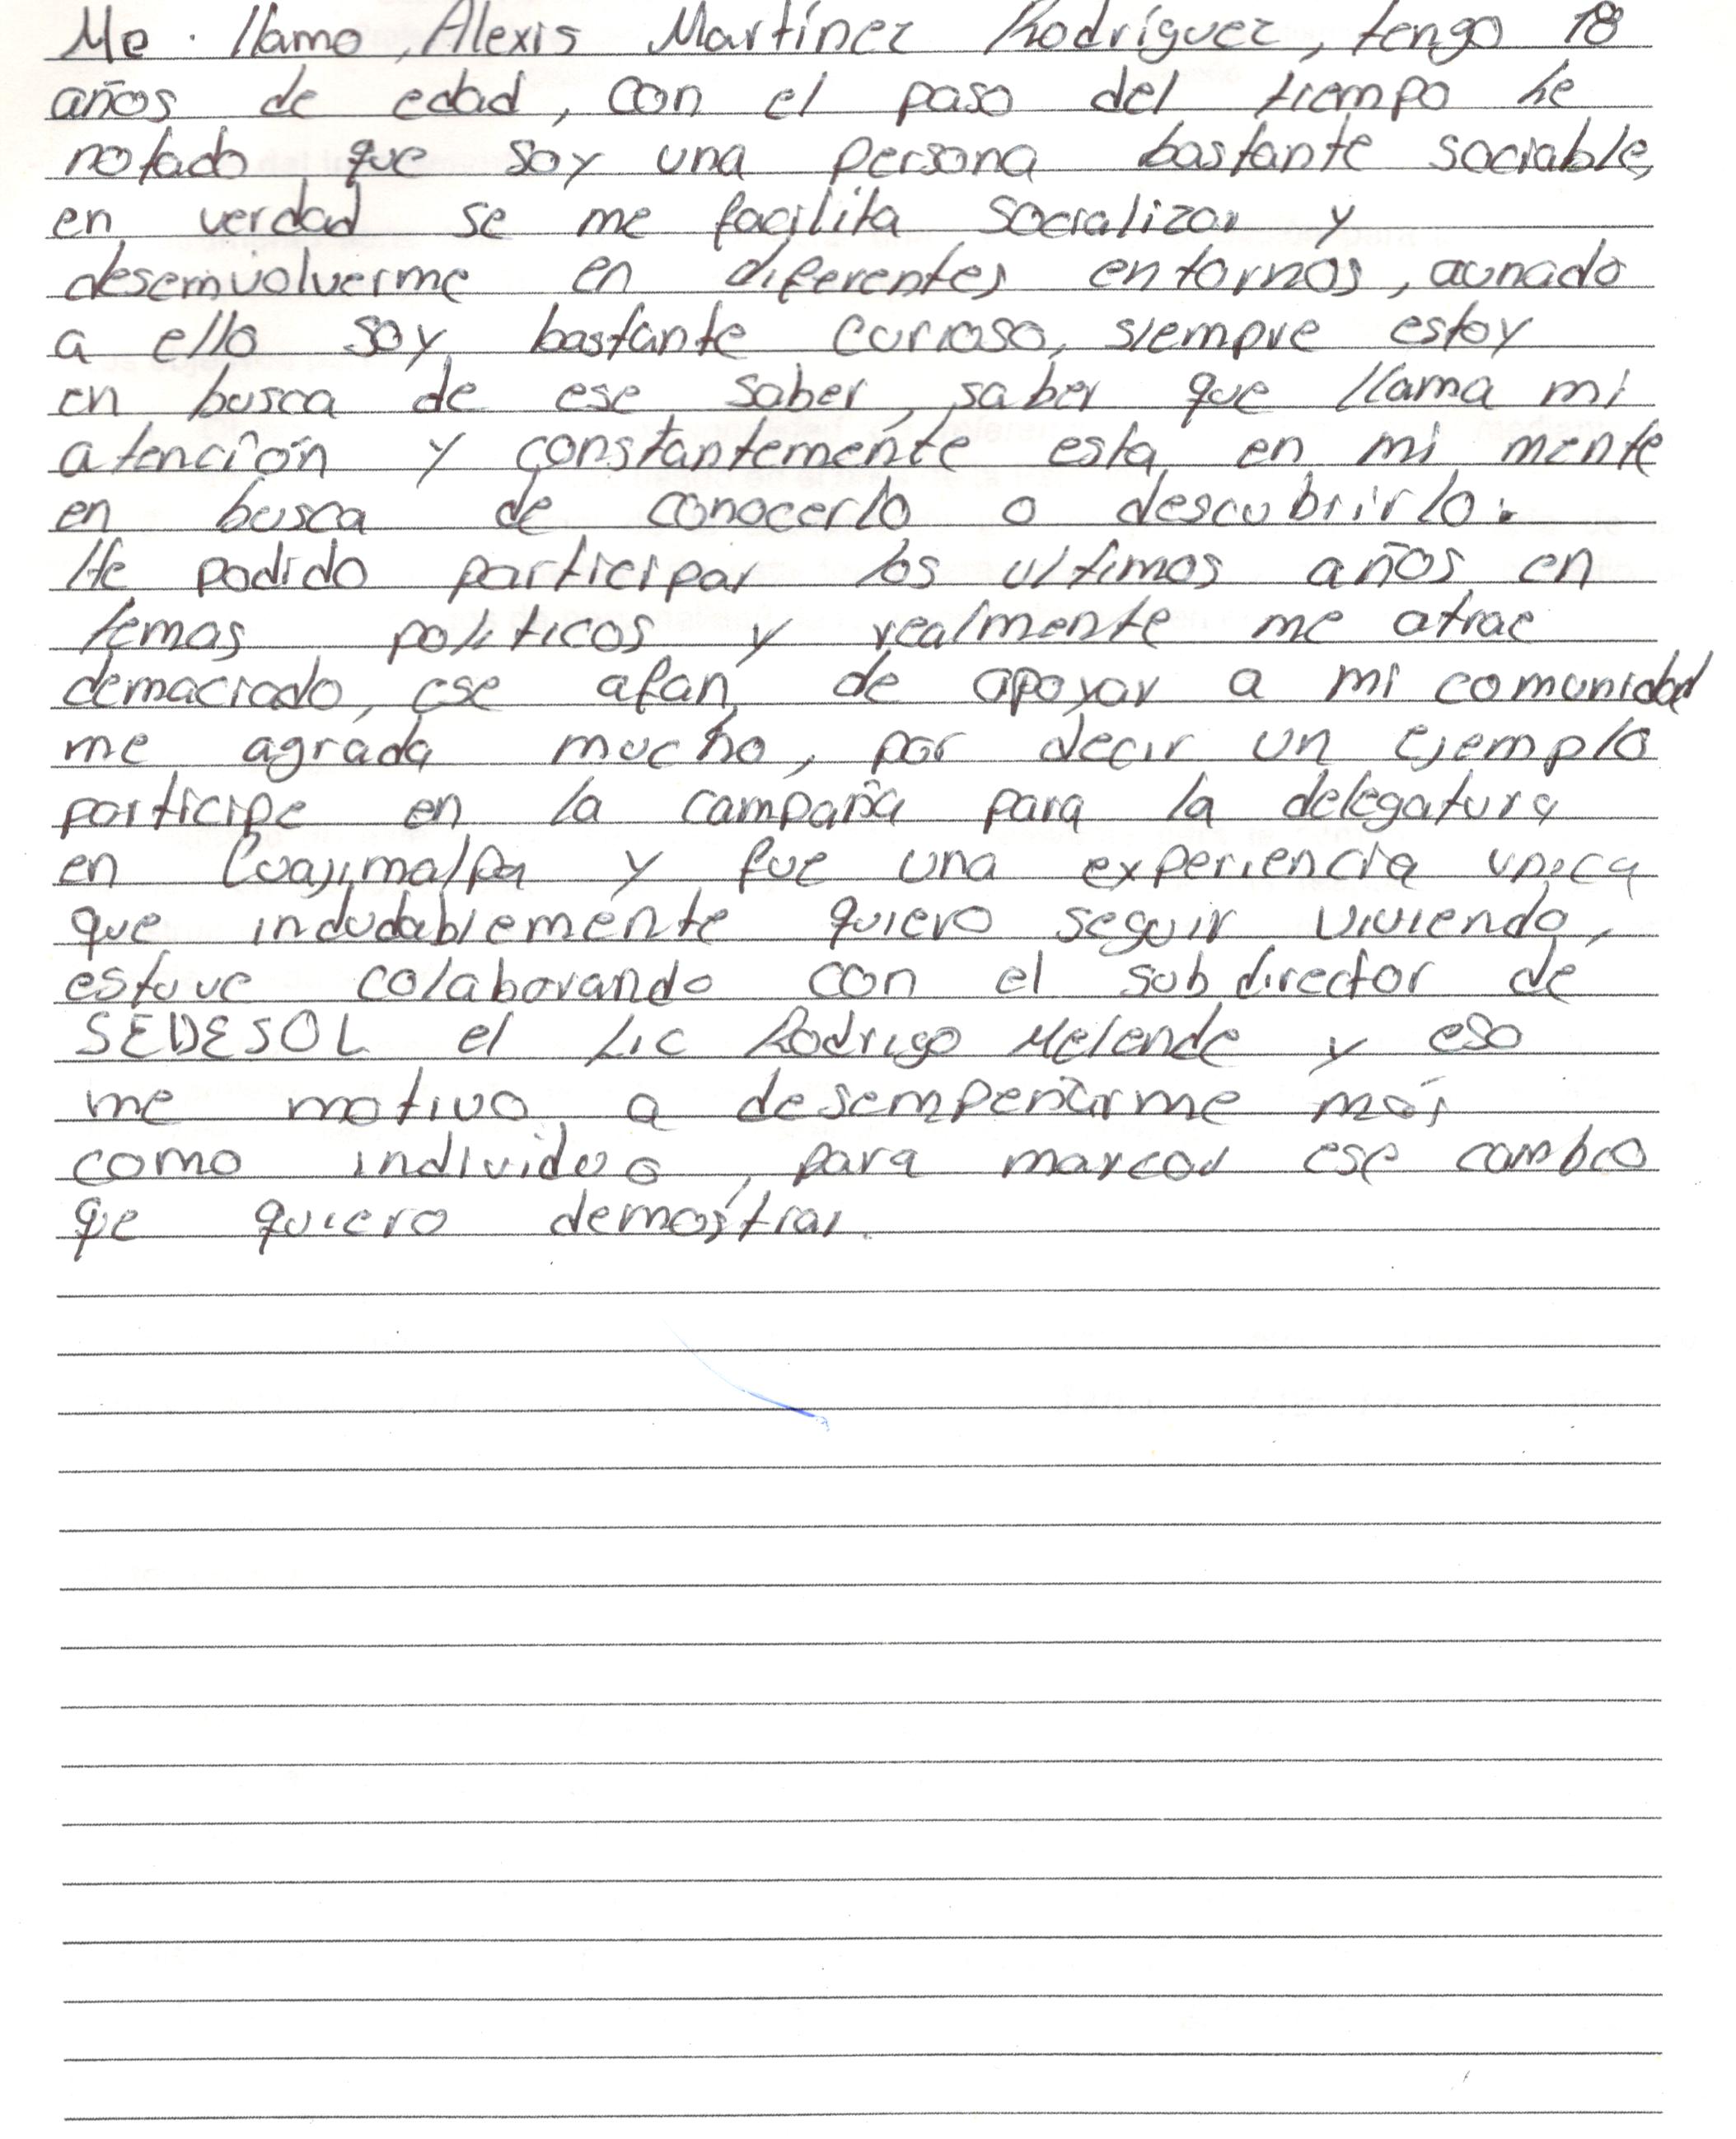 Me llamo, Alexis Martínez Rodríguez, tengo 18
años de edad, con el paso del tiempo he
notado que soy una persona bastante sociable,
en verdad se me facilita socializar y
desemvolverme en diferentes entornos, aunado
a ello soy bastante curioso, siempre estoy
en busca de ese saber, saber que llama mi
atención y constantemente esta en mi mente
en busca de conocerlo o descubrirlo.
He podido participar los ultimos años en
temas politicos y realmente me atrae
demaciado, ese afan de apoyar a mi comunidad
me agrada mucho, por decir un ejemplo
participe en la campaña para la delegatura
en Cuajimalpa y fue una experiencia unica
que indudablemente quiero seguir viviendo,
estuve colaborando con el subdirector de
SEDESOL el Lic Rodrigo Melende y eso
me motivo a desempeñarme más
como individuo, para marcar ese cambio
que quiero demostrar.